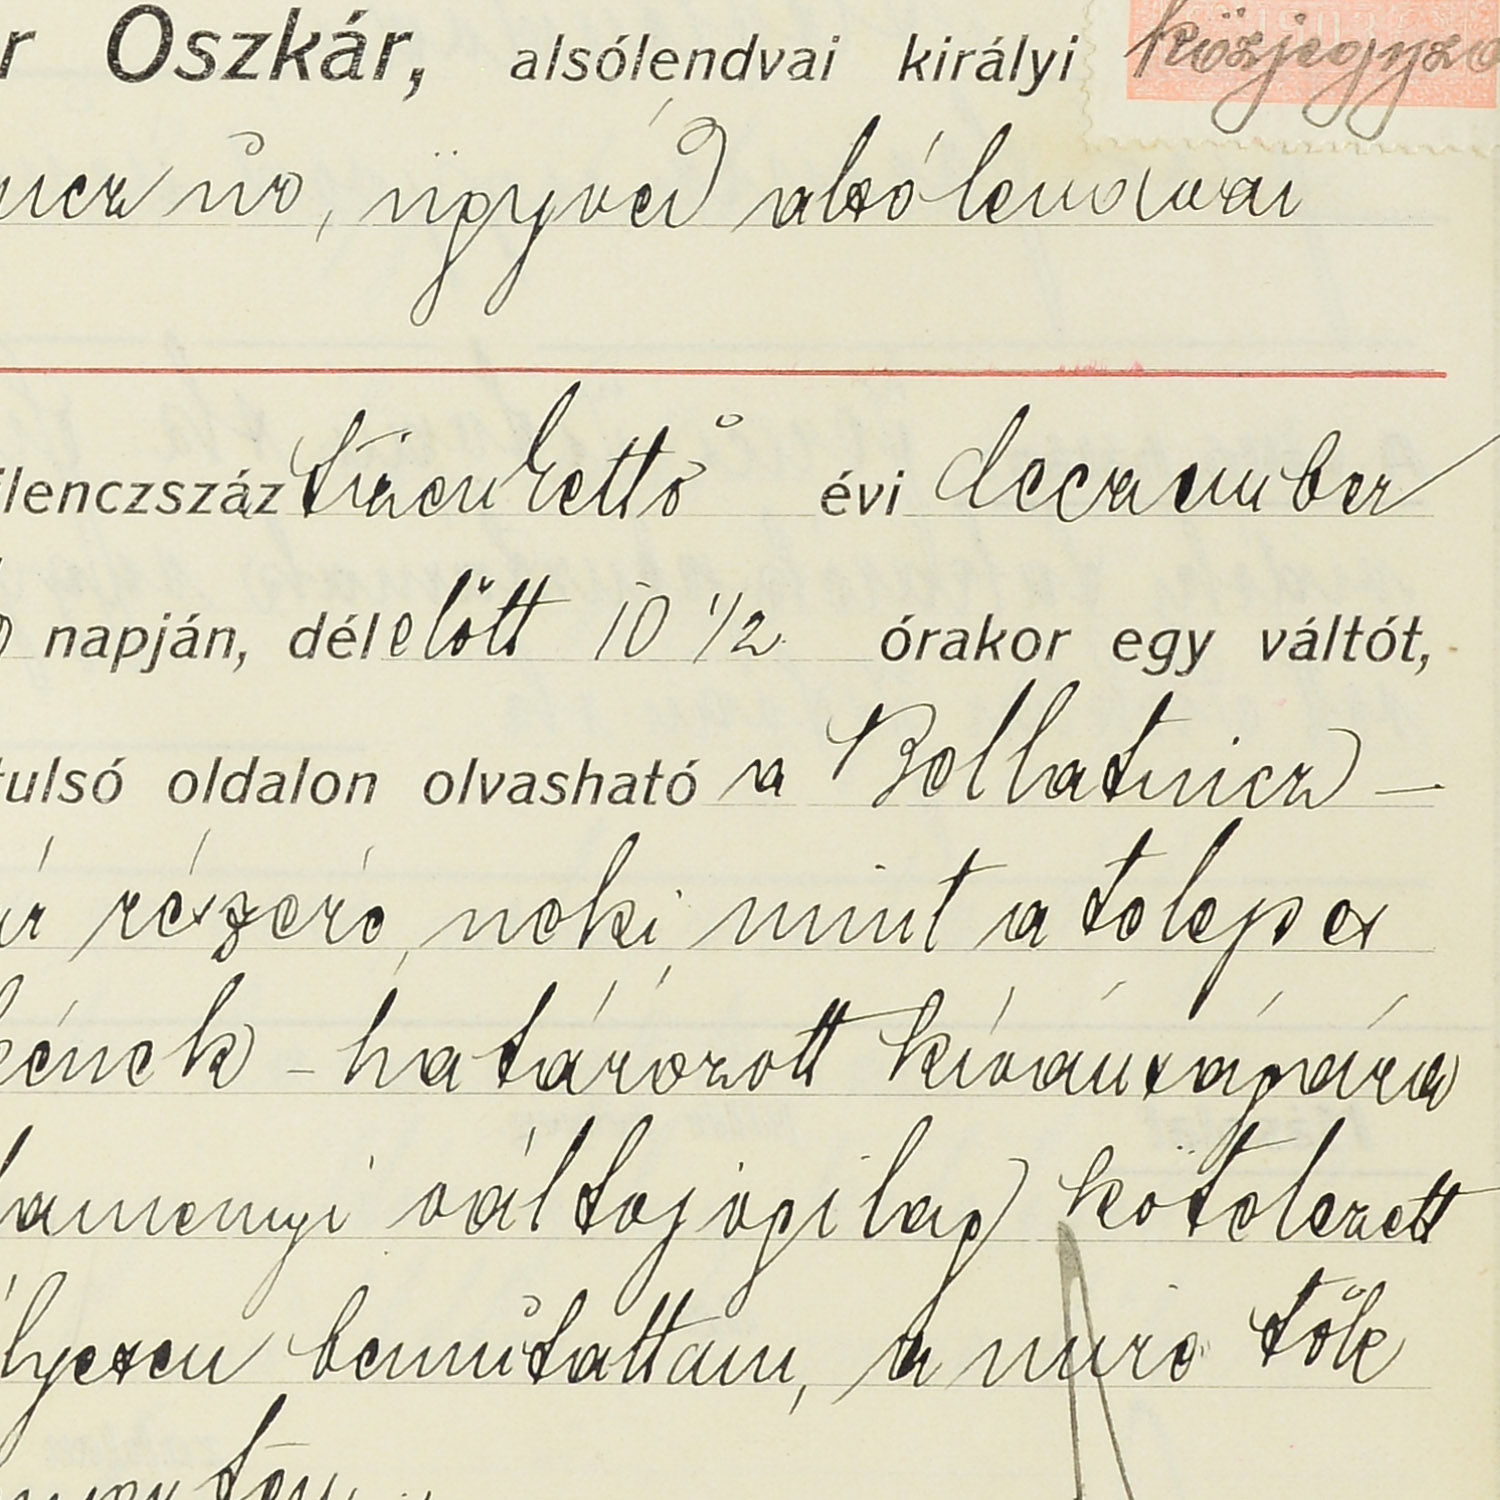 r Oszkár, alsólendvai királyi közjegyző
ncz úr, ügyvéd alsólendvai
ilenczszáz tizenkettő évi deczember
napján, délelőtt 10 1/2 órakor egy váltót,
tulsó oldalon olvasható a Bellatincz –
úr részére, neki, mint a telepes
kének – határozott kívánságára
hamennyi váltojogilag kötelezett
lyesen bemutattam, a mire tőle